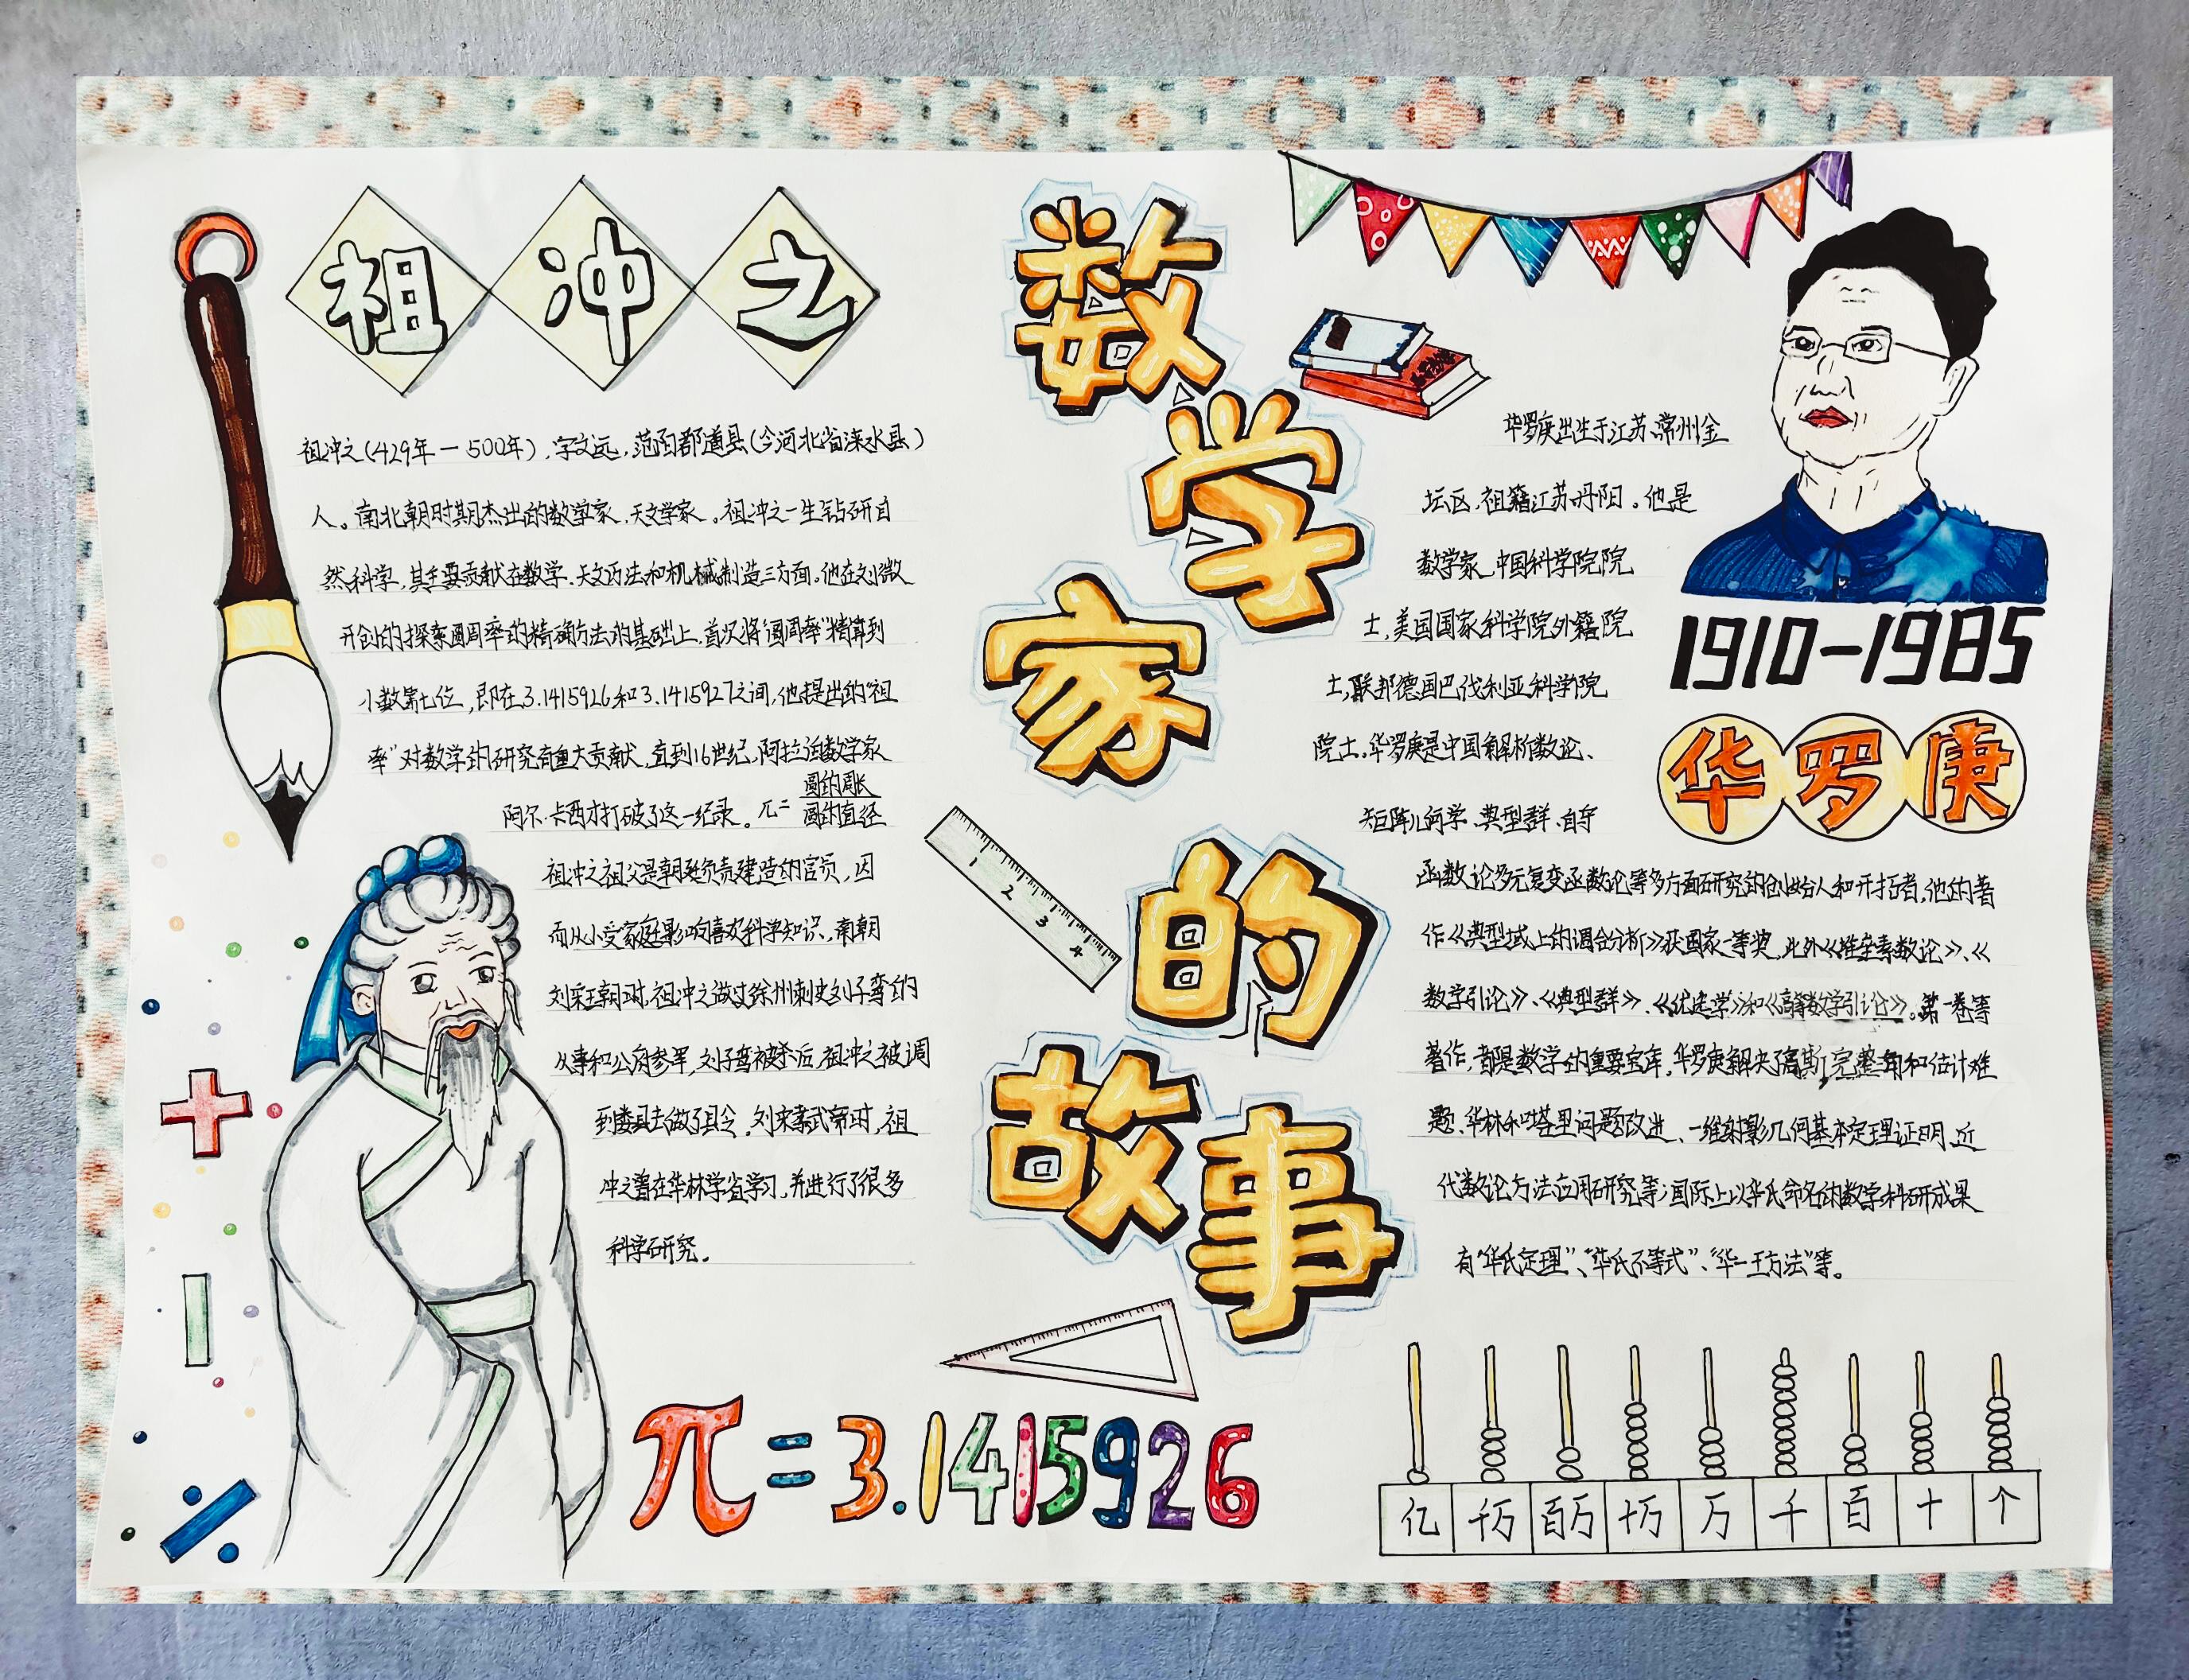 祖冲之
祖冲之(429年—500年),字文远,范阳郡遒县(今河北省涞水县)
人。南北朝时期杰出的数学家、天文学家。祖冲之一生钻研自
然科学,其主要贡献在数学、天文历法和机械制造三方面。他在刘徽
开创的探索圆周率的精确方法的基础上,首次将"圆周率"精算到
小数第七位,即在3.1415926和3.1415927之间,他提出的"祖
率"对数学的研究有重大贡献,直到16世纪,阿拉伯数学家
阿尔·卡西才打破了这一纪录。π=圆的周长
圆的直径
祖冲之祖父是朝廷负责建造的官员,因
而从小受家庭影响喜欢科学知识,南朝
刘宋王朝时,祖冲之做过徐州刺史刘子鸾的
从事和公府参军,刘子鸾被杀后,祖冲之被调
到娄县去做了县令。刘宋孝武帝时,祖
冲之曾在华林学省学习,并进行了很多
科学研究。
π=3.1415926
数学家的故事
1 2 3 4
1910-1985
华罗庚
华罗庚出生于江苏常州金
坛区,祖籍江苏丹阳。他是
数学家,中国科学院院
士,美国国家科学院外籍院
士,联邦德国巴伐利亚科学院
院士。华罗庚是中国解析数论、
矩阵几何学、典型群、自守
函数论多元复变函数论等多方面研究的创始人和开拓者,他的著
作《典型域上的调合分析》获国家一等奖,此外《堆垒素数论》、《
数学引论》、《典型群》、《优选学》和《高等数学引论》。第一卷等
著作,都是数学的重要宝库,华罗庚解决了高斯完整和估计难
题、华林和塔里问题改进、一维射影几何基本定理证明、近
代数论方法应用研究等;国际上以华氏命名的数学科研成果
有"华氏定理"、"华氏不等式"、"华—王方法"等。
亿 千万 百万 十万 万 千 百 十 个